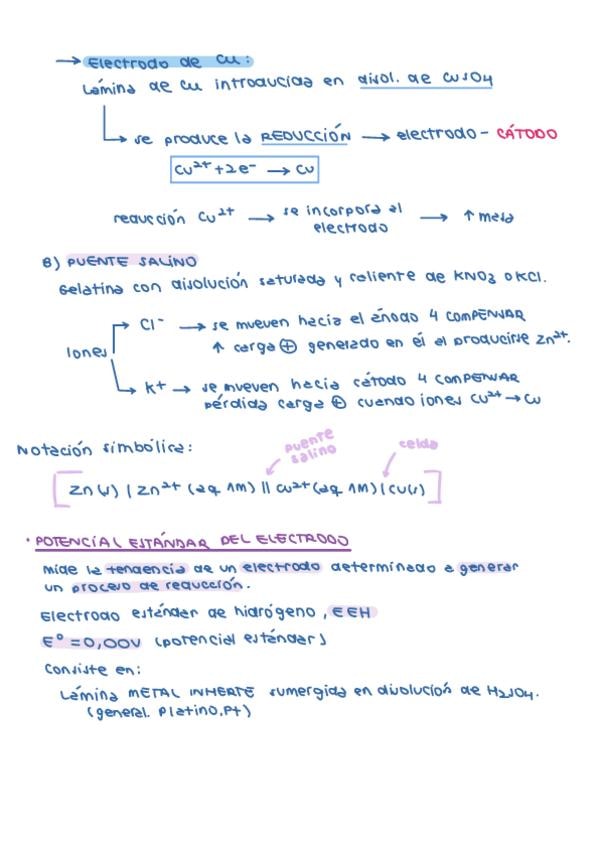 → Electrodo de Cu:
Lámina de Cu introducida en disol. de CuSO4
se produce la REDUCCIÓN → electrodo - CÁTODO
Cu²⁺ + 2e⁻ → Cu
reducción Cu²⁺ → se incorpora al electrodo → ↑ masa
B) PUENTE SALINO
Gelatina con disolución saturada y caliente de KNO3 o KCl.
Iones
Cl⁻ → se mueven hacia el ánodo 4 COMPENSAR
↑ carga ⊕ generado en él al producirse Zn²⁺.
K+ → se mueven hacia cátodo 4 COMPENSAR
pérdida carga ⊕ cuando iones Cu²⁺ → Cu
Notación simbólica:
puente salino
celda
[Zn(s) | Zn²⁺ (aq 1M) || Cu²⁺ (aq 1M) | Cu(s)]
· POTENCIAL ESTÁNDAR DEL ELECTRODO
Mide la tendencia de un electrodo determinado a generar
un proceso de reducción.
Electrodo estándar de hidrógeno, EEH
E° = 0,00V (potencial estándar)
Consiste en:
Lámina METAL INHERTE sumergida en disolución de H2SO4.
(general. Platino, Pt)